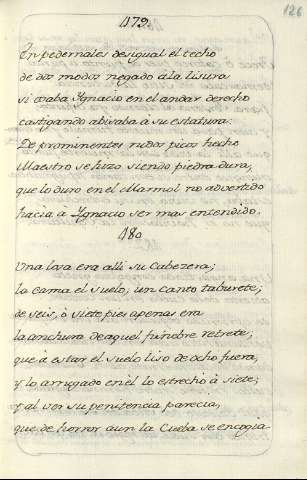 126
179.
En pedernales desigual el techo
de dos modos negado à la lisura
si osaba Ygnacio en el andar derecho
castigando abixaba à su estatura.
De prominentes rudos picos hecho
Maestro se hizo siendo piedra dura,
que lo duro en el Marmol no advertido
hacia à Ygnacio ser mas entendido.
180
Una losa era alli su Cabezera;
la cama el suelo; un canto taburete;
de seis, ò siete pies apenas era
la anchura de aquel funebre retrete;
que à estar el suelo liso de ocho fuera,
y lo arrugado en èl lo estrechò à siete;
y al ver su penitencia parecia,
que de horror aun la Cueba se encogia.